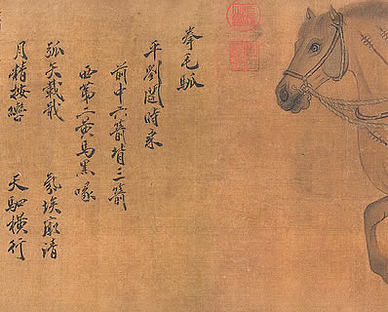 拳毛騧
平劉闥時乘
前中六箭背三箭
西第二黃馬黑喙
弧矢載戢 氛埃廓清
月精按轡 天駟橫行